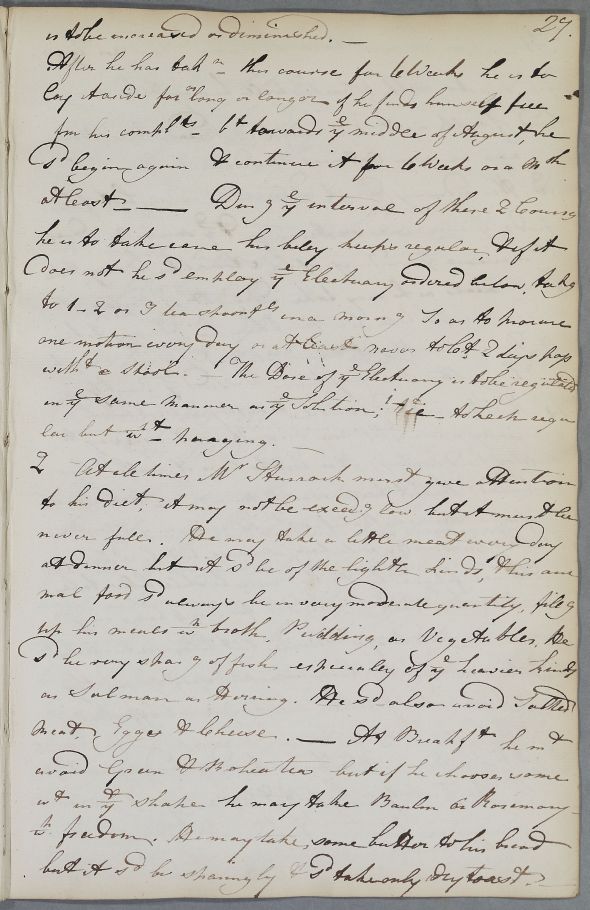 29.
is to be increased or diminished. —
After he has takn this course for 6 Weeks he is to
lay it aside for as long or longer if he finds himself free
fm his complts — bt towards ye middle of August, he
sd begin again & continue it for 6 Weeks or a Mth
at least — Durg ye interval of these 2 Courses
he is to take care his belly keeps regular, & if it
does not he sd employ ye Electuary ordered below, takg
to 1 – 2 or 3 tea spoonfls in a morng so as to procure
one motion every day or at least never to let 2 days pass
witht a stool. — The Dose of ye Electuary is to be regulated
in ye same manner as ye Solution, i.e. to keep regu
lar but wt purging. —
2 At all times Mr Sturrock must give attention
to his diet, it may not be exceedg low but it must be
never full. He may take a little meat every day
at dinner but it sd be of the lighter kinds, & this ani
mal food sd always be in very moderate quantity, fillg
up his meals wh broth, Pudding, or Vegetables. He
sd be very sparg of fish especialey of ye heavier kinds
as Salmon or Herring. He sd also avoid Salted
Meat, Eggs & Cheese. — At Breakft he mt
avoid Green & Bohea teas but if he chooses some
wt in ye shape he may take Baulm or Rosemary
wh freedom. He may take some butter to his bread
but it sd be sparingly & sd take only dry toast. —